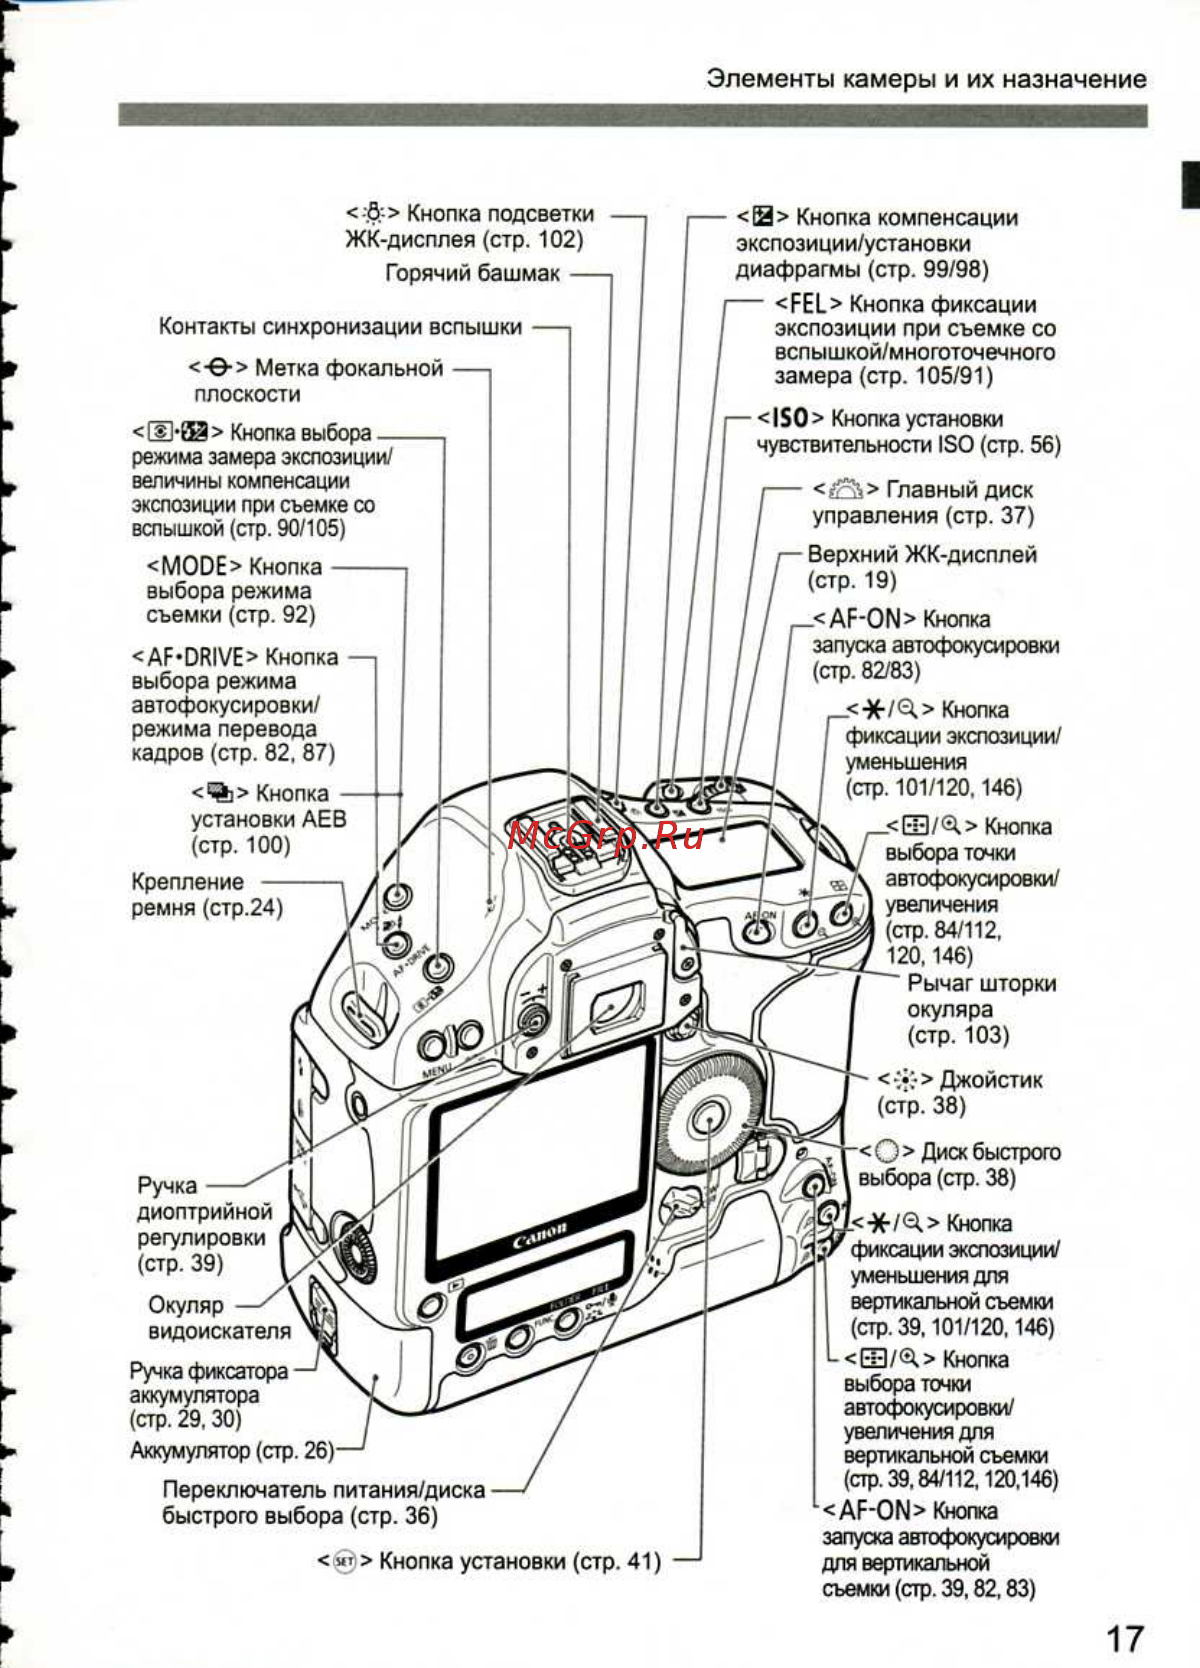 Элементы камеры и их назначение
< > Кнопка подсветки
ЖК-дисплея (стр. 102)
Горячий башмак
Контакты синхронизации вспышки
< > Метка фокальной
плоскости
< • > Кнопка выбора
режима замера экспозиции/
величины компенсации
экспозиции при съемке со
вспышкой (стр. 90/105)
<MODE> Кнопка
выбора режима
съемки (стр. 92)
<AF•DRIVE> Кнопка
выбора режима
автофокусировки/
режима перевода
кадров (стр. 82, 87)
< > Кнопка
установки AEB
(стр. 100)
Крепление
ремня (стр.24)
Ручка
диоптрийной
регулировки
(стр. 39)
Окуляр
видоискателя
Ручка фиксатора
аккумулятора
(стр. 29, 30)
Аккумулятор (стр. 26)
Переключатель питания/диска
быстрого выбора (стр. 36)
<SET> Кнопка установки (стр. 41)
< > Кнопка компенсации
экспозиции/установки
диафрагмы (стр. 99/98)
<FEL> Кнопка фиксации
экспозиции при съемке со
вспышкой/многоточечного
замера (стр. 105/91)
<ISO> Кнопка установки
чувствительности ISO (стр. 56)
< > Главный диск
управления (стр. 37)
Верхний ЖК-дисплей
(стр. 19)
<AF-ON> Кнопка
запуска автофокусировки
(стр. 82/83)
<✱/ > Кнопка
фиксации экспозиции/
уменьшения
(стр. 101/120, 146)
< / > Кнопка
выбора точки
автофокусировки/
увеличения
(стр. 84/112,
120, 146)
Рычаг шторки
окуляра
(стр. 103)
< > Джойстик
(стр. 38)
< > Диск быстрого
выбора (стр. 38)
<✱/ > Кнопка
фиксации экспозиции/
уменьшения для
вертикальной съемки
(стр. 39, 101/120, 146)
< / > Кнопка
выбора точки
автофокусировки/
увеличения для
вертикальной съемки
(стр. 39, 84/112, 120,146)
<AF-ON> Кнопка
запуска автофокусировки
для вертикальной
съемки (стр. 39, 82, 83)
McGrp.Ru
AF-ON
AF•DRIVE
MENU
Canon
FOLDER FILE
FUNC
17